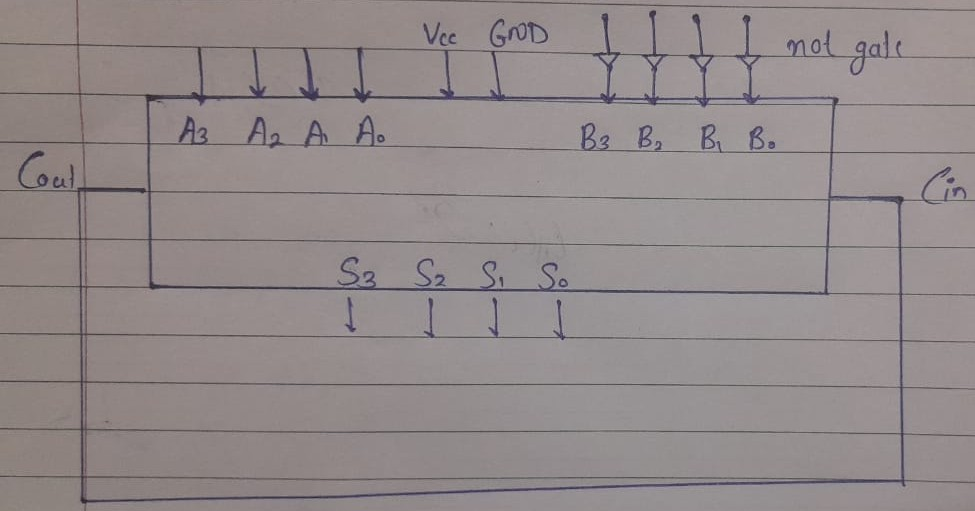 Vcc GND not gate
A3 A2 A1 A0 B3 B2 B1 B0
Cout Cin
S3 S2 S1 S0